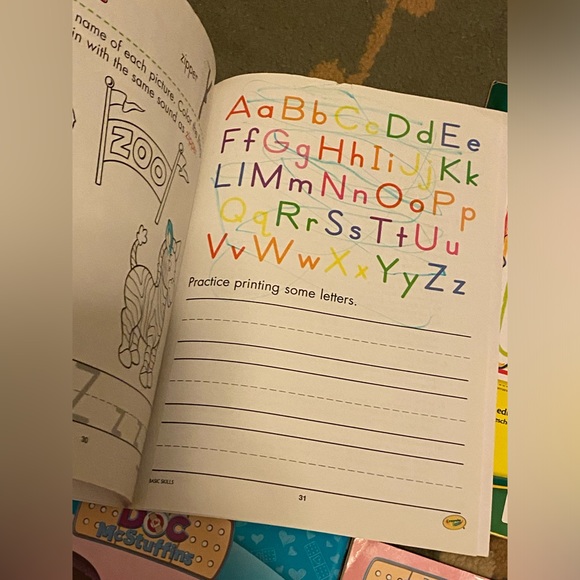 name of each picture. Color the
in with the same sound as zipper.
zipper
ZOO
Zz
30
Aa Bb Cc Dd Ee
Ff Gg Hh Ii Jj Kk
Ll Mm Nn Oo Pp
Qq Rr Ss Tt Uu
Vv Ww Xx Yy Zz
Practice printing some letters.
BASIC SKILLS
31
DOC
McStuffins